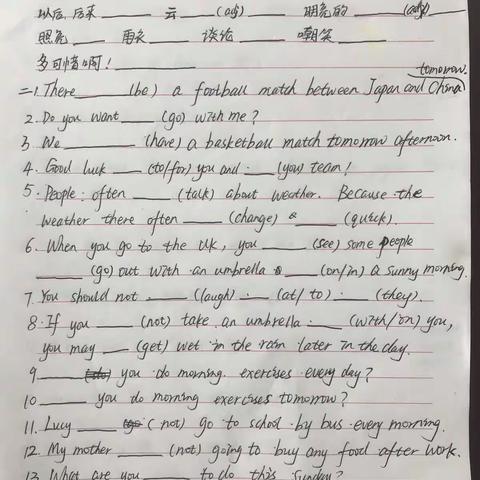 以后,后来 ______ 云 ____(adj) 明亮的 ______(adj)
照亮 ____ 雨衣 ____ 谈论 ____ 嘲笑 ____
多可惜啊! ________
tomorrow.
二1. There ______ (be) a football match between Japan and China
2. Do you want ____ (go) with me?
3 We ______ (have) a basketball match tomorrow afternoon.
4. Good luck ___ (to/for) you and ___ (you) team!
5. People often ____ (talk) about weather. Because the
weather there often ____ (change) ____ (quick).
6. When you go to the UK, you ____ (see) some people
____ (go) out with an umbrella ___ (on/in) a sunny morning.
7. You should not ____ (laugh) ___ (at/to) ___ (they).
8. If you ____ (not) take an umbrella ____ (with/on) you,
you may ___ (get) wet in the rain later in the day.
9 ____ (do) you do morning exercises every day?
10 ____ you do morning exercises tomorrow?
11. Lucy ____ (not) go to school by bus every morning.
12. My mother ____ (not) going to buy any food after work.
13. What are you ____ to do this Sunday?